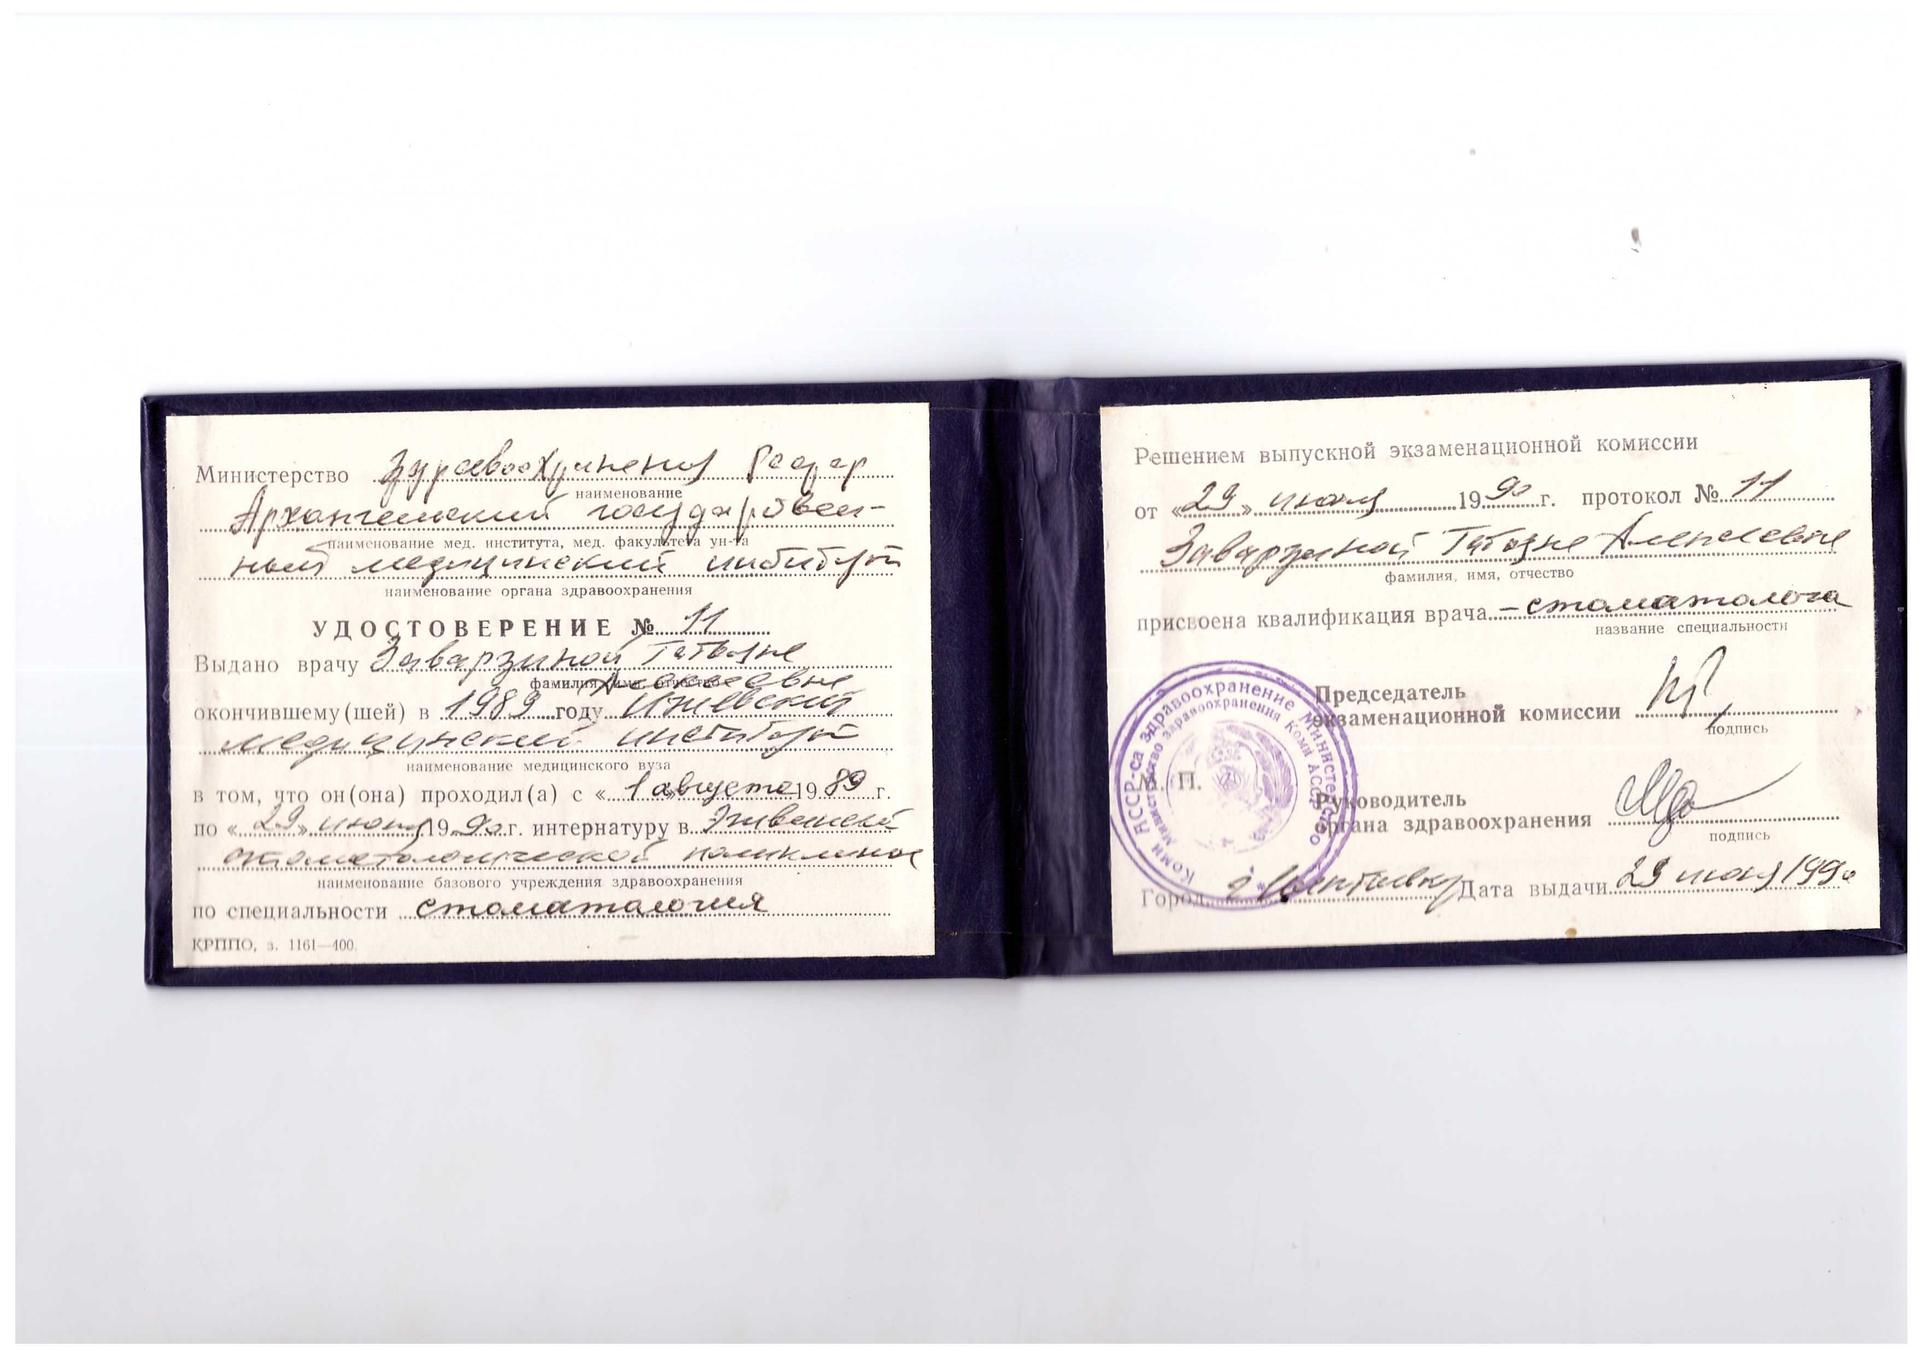 Министерство здравоохранения РСФСР
наименование
Архангельский государствен-
наименование мед. института, мед. факультета ун-та
ный медицинский институт
наименование органа здравоохранения
УДОСТОВЕРЕНИЕ № 11
Выдано врачу Заварзиной Татьяне
фамилия, имя, отчество
Алексеевне
окончившему(шей) в 1989 году Ижевский
медицинский институт
наименование медицинского вуза
в том, что он(она) проходил(а) с « 1 августа 1989 г.
по « 29 » июня 1990 г. интернатуру в Эжвинской
стоматологической поликлинике
наименование базового учреждения здравоохранения
по специальности стоматология
КРППО, з. 1161—400.
Решением выпускной экзаменационной комиссии
от «29» июня 1990 г. протокол № 11
Заварзиной Татьяне Алексеевне
фамилия, имя, отчество
присвоена квалификация врача—стоматолога
название специальности
Председатель
экзаменационной комиссии
подпись
М. П.
Руководитель
органа здравоохранения
подпись
Город г. Сыктывкар Дата выдачи 29 июня 1990
Коми АССР-са здравоохранение Министерство
Министерство здравоохранения Коми АССР